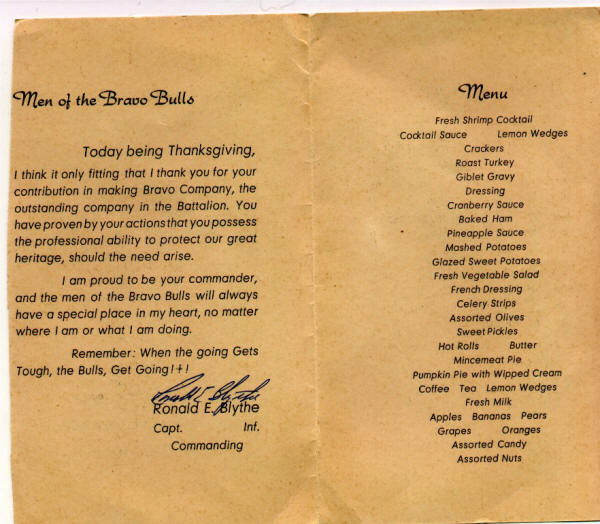 Men of the Bravo Bulls
Today being Thanksgiving,
I think it only fitting that I thank you for your
contribution in making Bravo Company, the
outstanding company in the Battalion. You
have proven by your actions that you possess
the professional ability to protect our great
heritage, should the need arise.
I am proud to be your commander,
and the men of the Bravo Bulls will always
have a special place in my heart, no matter
where I am or what I am doing.
Remember: When the going Gets
Tough, the Bulls, Get Going!+!
Ronald E Blythe
Ronald E. Blythe
Capt. Inf.
Commanding
Menu
Fresh Shrimp Cocktail
Cocktail Sauce Lemon Wedges
Crackers
Roast Turkey
Giblet Gravy
Dressing
Cranberry Sauce
Baked Ham
Pineapple Sauce
Mashed Potatoes
Glazed Sweet Potatoes
Fresh Vegetable Salad
French Dressing
Celery Strips
Assorted Olives
Sweet Pickles
Hot Rolls Butter
Mincemeat Pie
Pumpkin Pie with Wipped Cream
Coffee Tea Lemon Wedges
Fresh Milk
Apples Bananas Pears
Grapes Oranges
Assorted Candy
Assorted Nuts